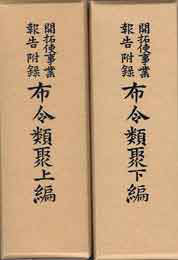 開拓使事業
報告附録
布令類聚上編
開拓使事業
報告附録
布令類聚下編